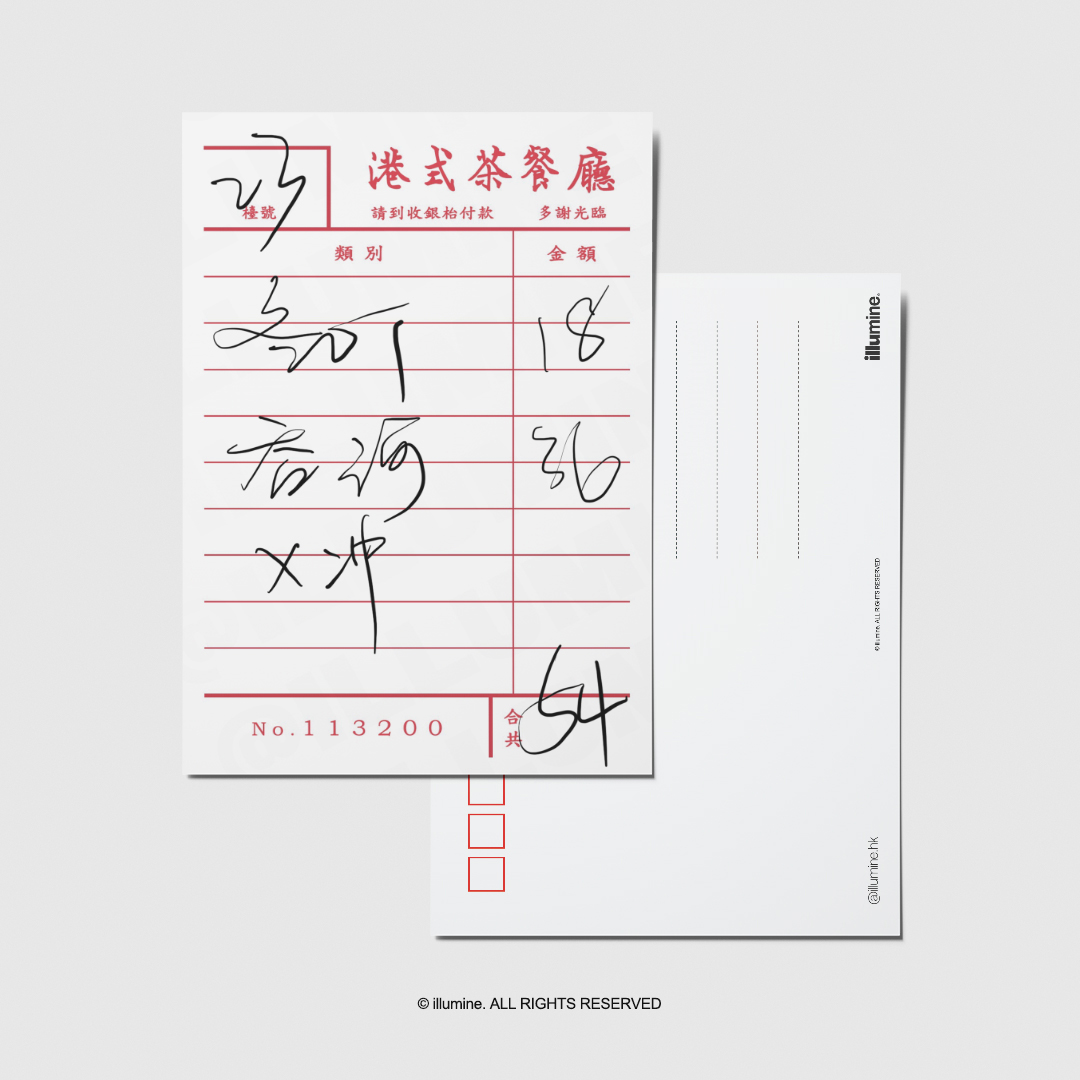 23
檯號
港式茶餐廳
請到收銀枱付款 多謝光臨
類別 金額
18
36
X冲
No.113200
合共 54
illumine.
© illumine. ALL RIGHTS RESERVED
@illumine.hk
© illumine. ALL RIGHTS RESERVED